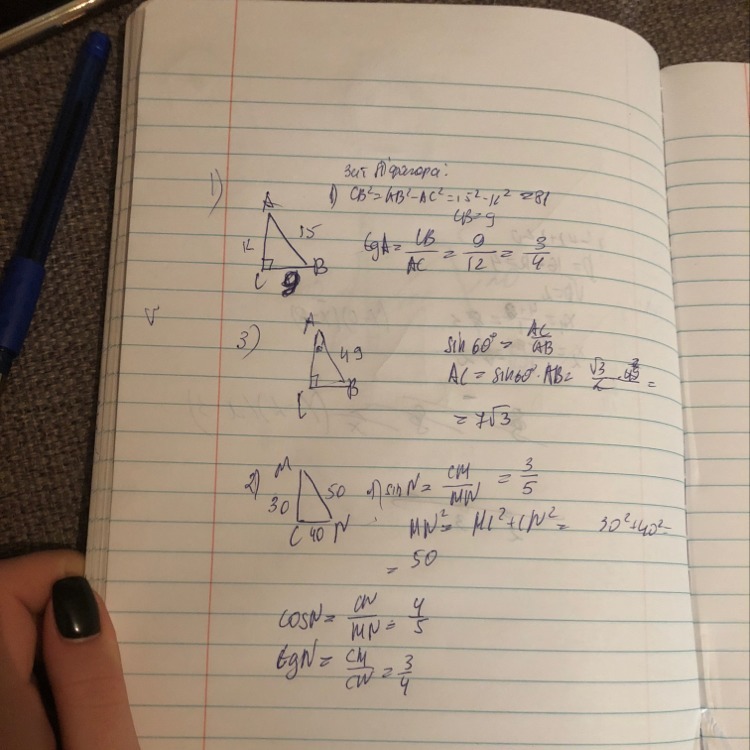 1)
За т Піфагора:
1) CB² = AB² - AC² = 15² - 12² = 81
CB = 9
A
12
15
C
B
9
tgA = CB/AC = 9/12 = 3/4
3)
A
49
C
B
sin 60° = AC/AB
AC = sin 60° · AB =
= 7√3
2)
M
30
50
C
40
N
1) sin N = CM/MN = 3/5
MN² = MC² + CN² = 30² + 40² =
= 50
cosN = CN/MN = 4/5
tgN = CM/CN = 3/4